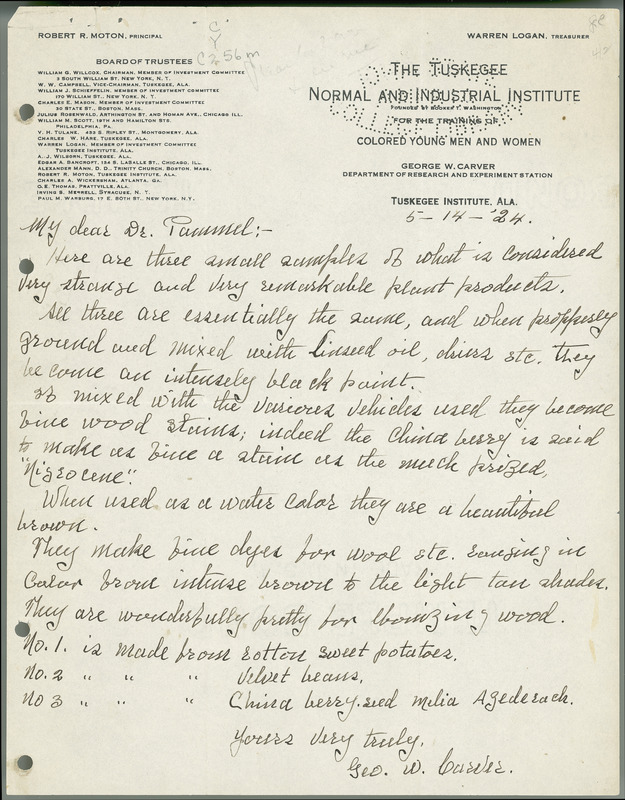 ROBERT R. MOTON, PRINCIPAL
WARREN LOGAN, TREASURER
BOARD OF TRUSTEES
WILLIAM G. WILLCOX, CHAIRMAN, MEMBER OF INVESTMENT COMMITTEE
3 SOUTH WILLIAM ST. NEW YORK, N. Y.
W. W. CAMPBELL, VICE-CHAIRMAN, TUSKEGEE, ALA.
WILLIAM J. SCHIEFFELIN, MEMBER OF INVESTMENT COMMITTEE
170 WILLIAM ST., NEW YORK, N. Y.
CHARLES E. MASON, MEMBER OF INVESTMENT COMMITTEE
30 STATE ST., BOSTON, MASS.
JULIUS ROSENWALD, ARTHINGTON ST. AND HOMAN AVE., CHICAGO, ILL.
WILLIAM M. SCOTT, 19TH AND HAMILTON STS.
PHILADELPHIA, PA.
V. H. TULANE, 435 S. RIPLEY ST., MONTGOMERY, ALA.
CHARLES W. HARE, TUSKEGEE, ALA.
WARREN LOGAN, MEMBER OF INVESTMENT COMMITTEE
TUSKEGEE INSTITUTE, ALA.
A. J. WILBORN, TUSKEGEE, ALA.
EDGAR A. BANCROFT, 134 S. LASALLE ST., CHICAGO, ILL.
ALEXANDER MANN, D. D., TRINITY CHURCH, BOSTON, MASS.
ROBERT R. MOTON, TUSKEGEE INSTITUTE, ALA.
CHARLES A. WICKERSHAM, ATLANTA, GA.
G. E. THOMAS, PRATTVILLE, ALA.
IRVING S. MERRELL, SYRACUSE, N. Y.
PAUL M. WARBURG, 17 E. 80TH ST., NEW YORK, N. Y.
THE TUSKEGEE
NORMAL AND INDUSTRIAL INSTITUTE
FOUNDED BY BOOKER T. WASHINGTON
FOR THE TRAINING OF
COLORED YOUNG MEN AND WOMEN
GEORGE W. CARVER
DEPARTMENT OF RESEARCH AND EXPERIMENT STATION
TUSKEGEE INSTITUTE, ALA.
5-14-'24.
My dear Dr. Pammel:-
Here are three small samples of what is considered
very strange and very remarkable plant products.
All three are essentially the same, and when propperly
ground and mixed with linseed oil, driers etc. they
become an intensely black paint.
If mixed with the various vehicles used they become
fine wood stains; indeed the China berry is said
to make as fine a stain as the much prized,
"Nigrocene".
When used as a water color they are a beautiful
brown.
They make fine dyes for wool etc. ranging in
color from intense brown to the light tan shades.
They are wonderfully pretty for Ebonizing wood.
No. 1. is made from rotton sweet potatoes.
No. 2 " " " Velvet beans.
No 3 " " " China berry seed Melia Azederach.
Yours very truly,
Geo. W. Carver.